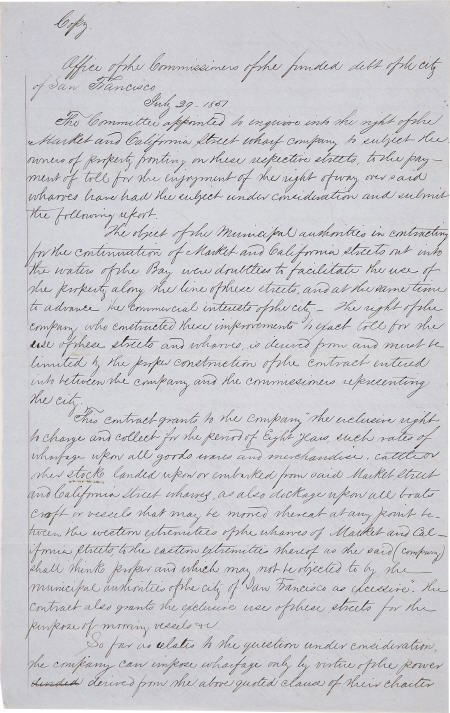 Copy.
Office of the Commissioners of the funded debt of the city
of San Francisco
July 29. 1851
The Committee appointed to enquire into the right of the
Market and California Street wharf company to subject the
owners of property fronting on these respective streets, to the pay-
ment of toll for the enjoyment of the right of way over said
wharves have had the subject under consideration and submit
the following report.
The object of the Municipal authorities in contracting
for the continuation of Market and California streets out into
the waters of the Bay were doubtless to facilitate the use of
the property along the line of these streets, and at the same time
to advance the commercial interests of the city - The right of the
company who constructed these improvements to exact toll for the
use of these streets and wharves, is derived from and must be
limited by the proper construction of the contract entered
into between the company and the commissioners representing
the city.
This contract grants to the company "the exclusive right
to charge and collect for the period of Eight years, such rates of
wharfage upon all goods wares and merchandise, cattle or
other stock landed upon or embarked from said Market Street
and California street wharves, as also dockage upon all boats
craft or vessels that may be moored thereat at any point be-
tween the western extremities of the wharves of Market and Cal-
ifornia streets to the eastern extremities thereof as the said (company)
shall think proper and which may not be objected to by the
municipal authorities of the city of San Francisco as excessive". The
contract also grants the exclusive use of these streets for the
purpose of mooring vessels &c
So far as relates to the question under consideration,
the company can impose wharfage only by virtue of the power
derived from the above quoted clause of their charter